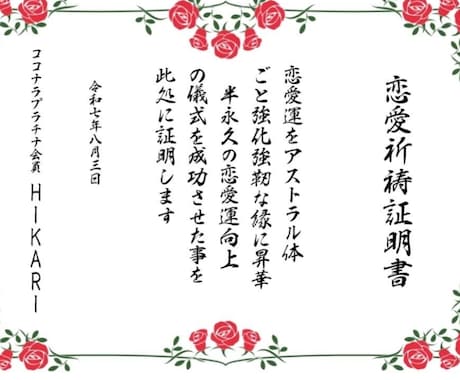 恋愛祈祷証明書
恋愛運をアストラル体
ごと強化強靭な縁に昇華
半永久の恋愛運向上
の儀式を成功させた事を
此処に証明します
令和七年八月三日
ココナラプラチナ会員 HIKARI